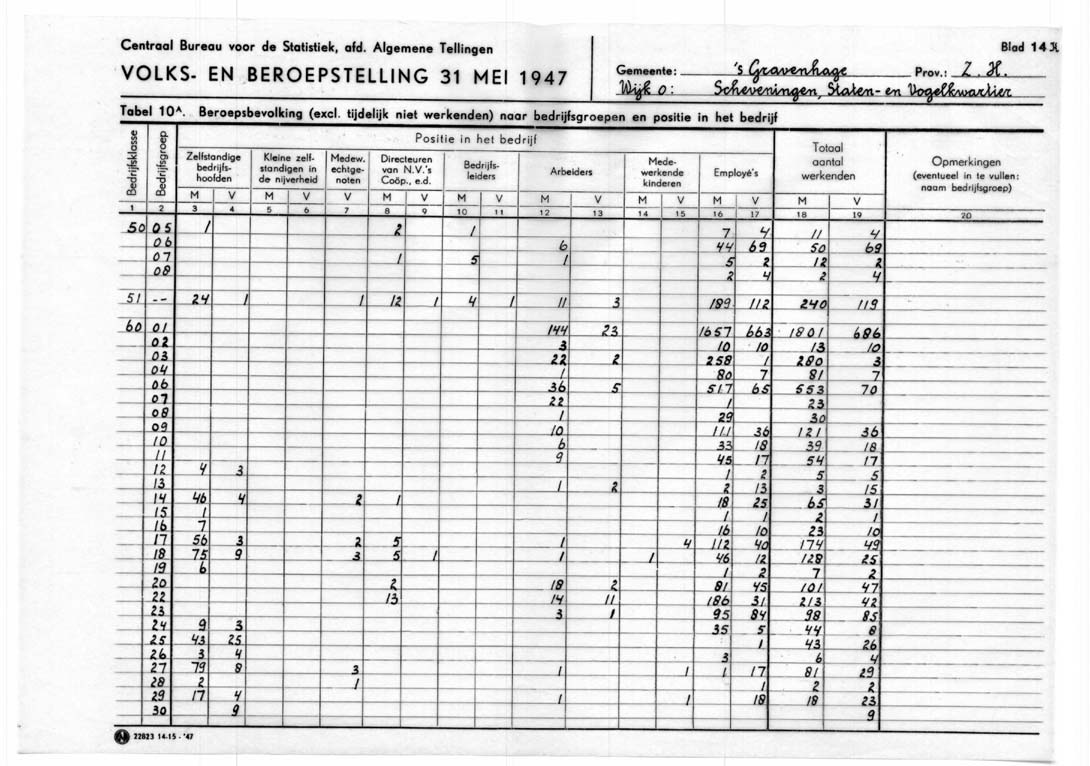 Centraal Bureau voor de Statistiek, afd. Algemene Tellingen
Blad 14
VOLKS- EN BEROEPSTELLING 31 MEI 1947
Gemeente: 's Gravenhage Prov.: Z. H.
Wijk O: Scheveningen, Staten- en Vogelkwartier
Tabel 10A. Beroepsbevolking (excl. tijdelijk niet werkenden) naar bedrijfsgroepen en positie in het bedrijf
Bedrijfsklasse Bedrijfsgroep Positie in het bedrijf Totaal aantal werkenden Opmerkingen (eventueel in te vullen: naam bedrijfsgroep)
Zelfstandige bedrijfs-hoofden Kleine zelf-standigen in de nijverheid Medew. echtge-noten Directeuren van N.V.'s Coöp., e.d. Bedrijfs-leiders Arbeiders Mede-werkende kinderen Employé's
M V M V V M V M V M V M V M V M V
1 2 3 4 5 6 7 8 9 10 11 12 13 14 15 16 17 18 19 20
50 05 1 2 1 7 4 11 4
06 6 44 69 50 69
07 1 5 1 5 2 12 2
08 2 4 2 4
51 -- 24 1 1 12 1 4 1 11 3 189 112 240 119
60 01 144 23 1657 663 1801 686
02 3 10 10 13 10
03 22 2 258 1 280 3
04 1 80 7 81 7
06 36 5 517 65 553 70
07 22 1 23
08 1 29 30
09 10 111 36 121 36
10 6 33 18 39 18
11 9 45 17 54 17
12 4 3 1 2 5 5
13 1 2 2 13 3 15
14 46 4 2 1 18 25 65 31
15 1 1 1 2 1
16 7 16 10 23 10
17 56 3 2 5 1 4 112 40 174 49
18 75 9 3 5 1 1 1 46 12 128 25
19 6 1 2 7 2
20 2 18 2 81 45 101 47
22 13 14 11 186 31 213 42
23 3 1 95 84 98 85
24 9 3 35 5 44 8
25 43 25 1 43 26
26 3 4 3 6 4
27 79 8 3 1 1 1 17 81 29
28 2 1 1 2 2
29 17 4 1 1 18 18 23
30 9 9
22823 14-15 - '47